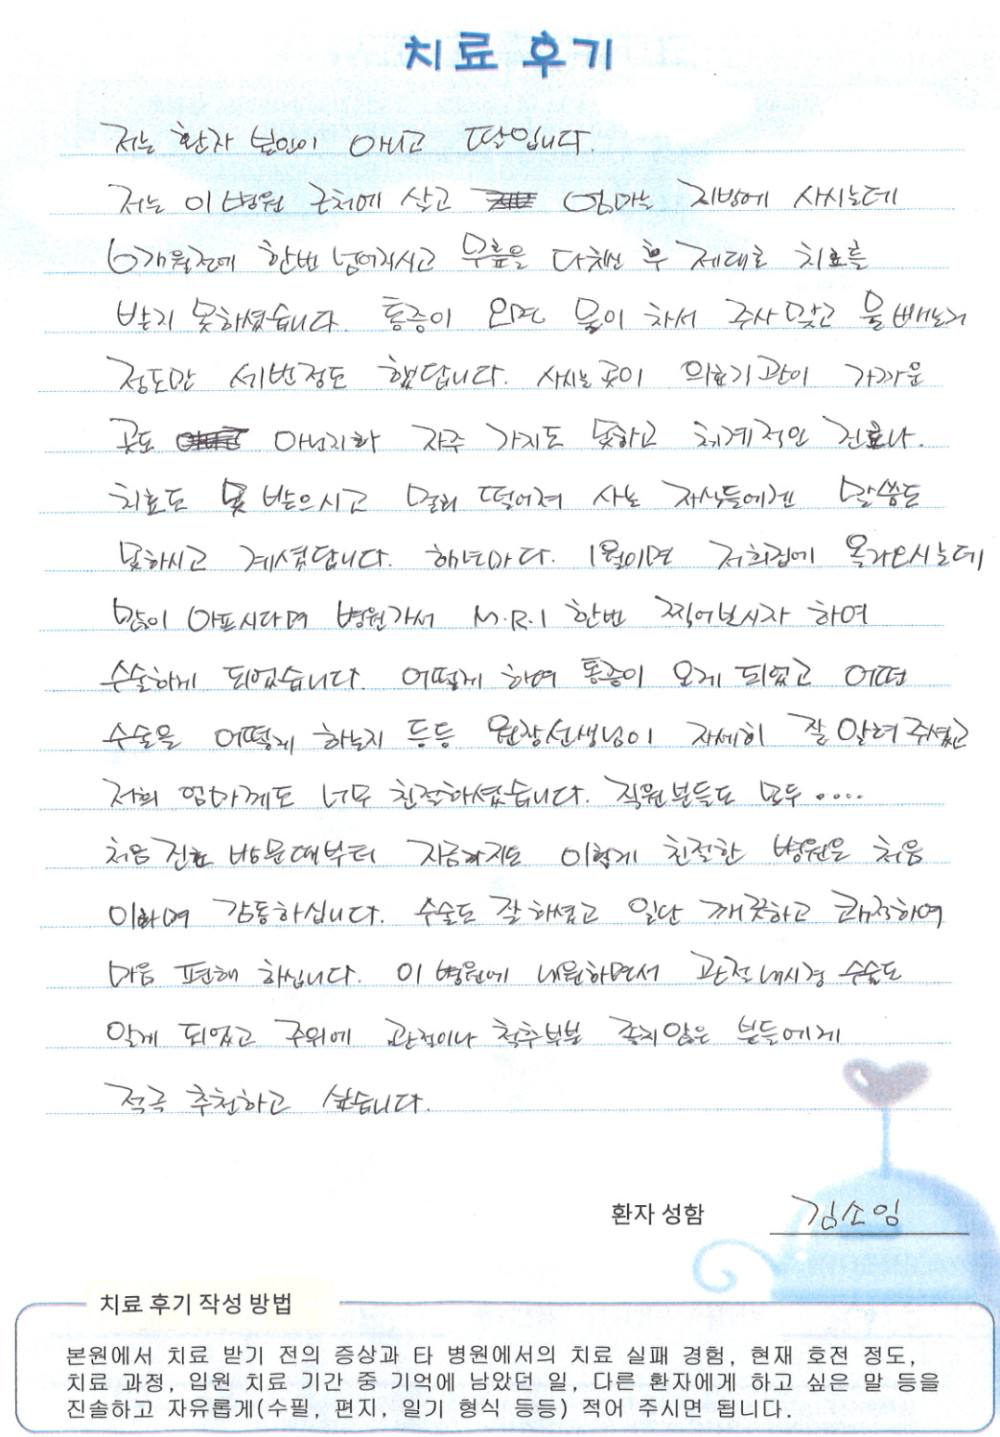 치료 후기
저는 환자 본인이 아니고 딸입니다.
저는 이 병원 근처에 살고 엄마는 지방에 사시는데
6개월전에 한번 넘어지시고 무릎을 다치신 후 제대로 치료를
받지 못하셨습니다. 통증이 오면 물이 차서 주사 맞고 물 빼는거
정도만 세번정도 했답니다. 사시는 곳이 의료기관이 가까운
곳도 아닌지라 자주 가지도 못하고 체계적인 진료나.
치료도 못 받으시고 멀리 떨어져 사는 자식들에겐 말씀도
못하시고 계셨답니다. 해년마다. 1월이면 저희집에 올라오시는데
많이 아프시다며 병원가서 M.R.I 한번 찍어보시자 하여
수술하게 되었습니다. 어떻게 하여 통증이 오게 되었고 어떤
수술을 어떻게 하는지 등등 원장선생님이 자세히 잘 알려주셨고
저희 엄마께도 너무 친절하셨습니다. 직원분들도 모두....
처음 진료 방문때부터 지금까지도 이렇게 친절한 병원은 처음
이라며 감동하십니다. 수술도 잘 하셨고 일단 깨끗하고 쾌적하여
마음 편해 하십니다. 이 병원에 내원하면서 관절내시경 수술도
알게 되었고 주위에 관절이나 척추부분 좋지않은 분들에게
적극 추천하고 싶습니다.
환자 성함 김소임
치료 후기 작성 방법
본원에서 치료 받기 전의 증상과 타 병원에서의 치료 실패 경험, 현재 호전 정도,
치료 과정, 입원 치료 기간 중 기억에 남았던 일, 다른 환자에게 하고 싶은 말 등을
진솔하고 자유롭게(수필, 편지, 일기 형식 등등) 적어 주시면 됩니다.